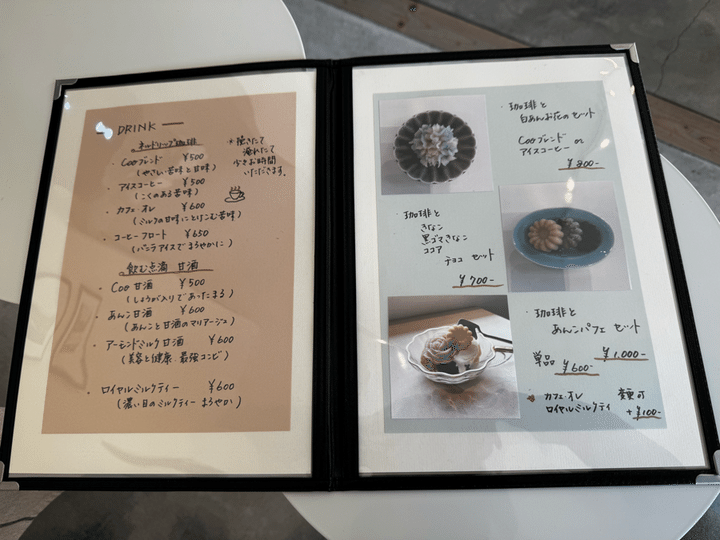 DRINK
ネルドリップ珈琲
＊挽きたて
淹れたて
少々お時間
いただきます。
・Cooブレンド ¥500
(やさしい苦味と甘味)
・アイスコーヒー ¥500
(こくのある苦味)
・カフェ・オレ ¥600
(ミルクの甘味にとけこむ苦味)
・コーヒーフロート ¥650
(バニラアイスでまろやかに)
飲む点滴 甘酒
・Coo甘酒 ¥500
(しょうが入りであったまる)
・あん甘酒 ¥600
(あんこと甘酒のマリアージュ)
・アーモンドミルク甘酒 ¥600
(美容と健康、最強コンビ)
・ロイヤルミルクティー ¥600
(濃い目のミルクティー まろやか)
・珈琲と
白あんお花のセット
Cooブレンド or
アイスコーヒー
¥800-
・珈琲と
きなこ
黒ゴマきなこ
ココア
チョコ セット
¥700-
・珈琲と
あんこパフェ セット
¥1,000-
単品 ¥600-
カフェ・オレ
ロイヤルミルクティ
変更可
+¥100-